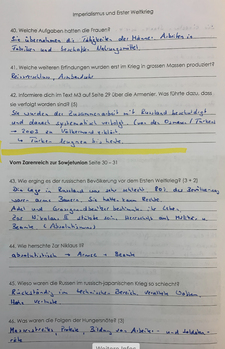 Imperialismus und Erster Weltkrieg
40. Welche Aufgaben hatten die Frauen?
Sie übernahmen die Tätigkeiten der Männer. Arbeiten in
Fabriken und beschaffen Nahrungsmittel.
41. Welche weiteren Erfindungen wurden erst im Krieg in grossen Massen produziert?
Reissverschluss, Armbanduhr
42. Informiere dich im Text M3 auf Seite 29 über die Armenier. Was führte dazu, dass
sie verfolgt worden sind? (5)
Sie wurden der Zusammenarbeit mit Russland beschuldigt
und danach systematisch verfolgt. (von den Osmanen / Türken)
→ 2003 als Völkermord
↳ Türken leugnen bis heute.
Vom Zarenreich zur Sowjetunion Seite 30 - 31
43. Wie erging es der russischen Bevölkerung vor dem Ersten Weltkrieg? (3 + 2)
Die Lage in Russland war sehr schlecht. 80% der Bevölkerung
waren arme Bauern. Sie hatten kaum Rechte.
Adel und Grossgrundbesitzer bestimmten ihr Leben.
Zar Nikolaus II stützte sein Herrschaft auf Militär u.
Beamte (Absolutismus)
44. Wie herrschte Zar Niklaus II?
absolutistisch → Armee + Beamte
45. Wieso waren die Russen im russisch-japanischen Krieg so schlecht?
Rückständig im technischen Bereich, veraltete Waffen,
Hohe Verluste
46. Was waren die Folgen der Hungersnöte? (3)
Massenstreiks, Proteste, Bildung von Arbeiter- und Soldaten-
räte